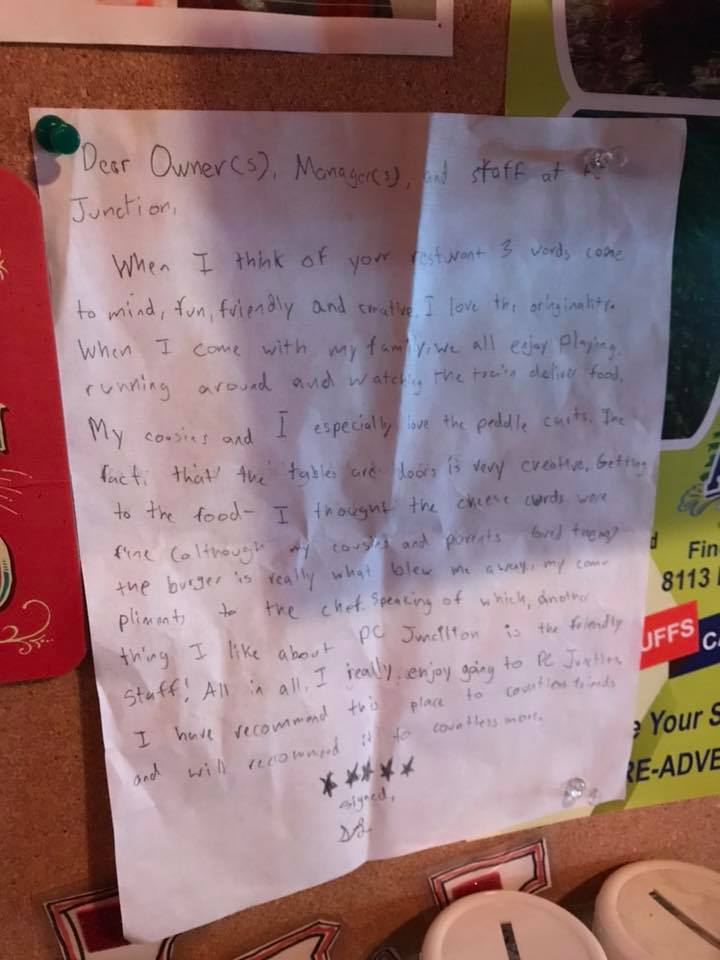 Dear Owner(s), Manager(s), and staff at PC
Junction,
When I think of your resturant 3 words come
to mind, fun, friendly and creative. I love the originality.
When I come with my family, we all enjoy Playing,
running around and watching the train deliver food.
My cousins and I especially love the peddle carts. The
fact, that the tables are doors is very creative. Getting
to the food- I thought the cheese curds were
fine (although my cousins and parents loved them)
the burger is really what blew me away. my com-
pliments to the chef. Speaking of which, another
thing I like about PC Junction is the friendly
staff! All in all, I really enjoy going to PC Junction
I have recommend this place to countless friends
and will recommend it to countless more.
★★★★★
signed,
Fin
8113
UFFS
CA
e Your S
RE-ADVE